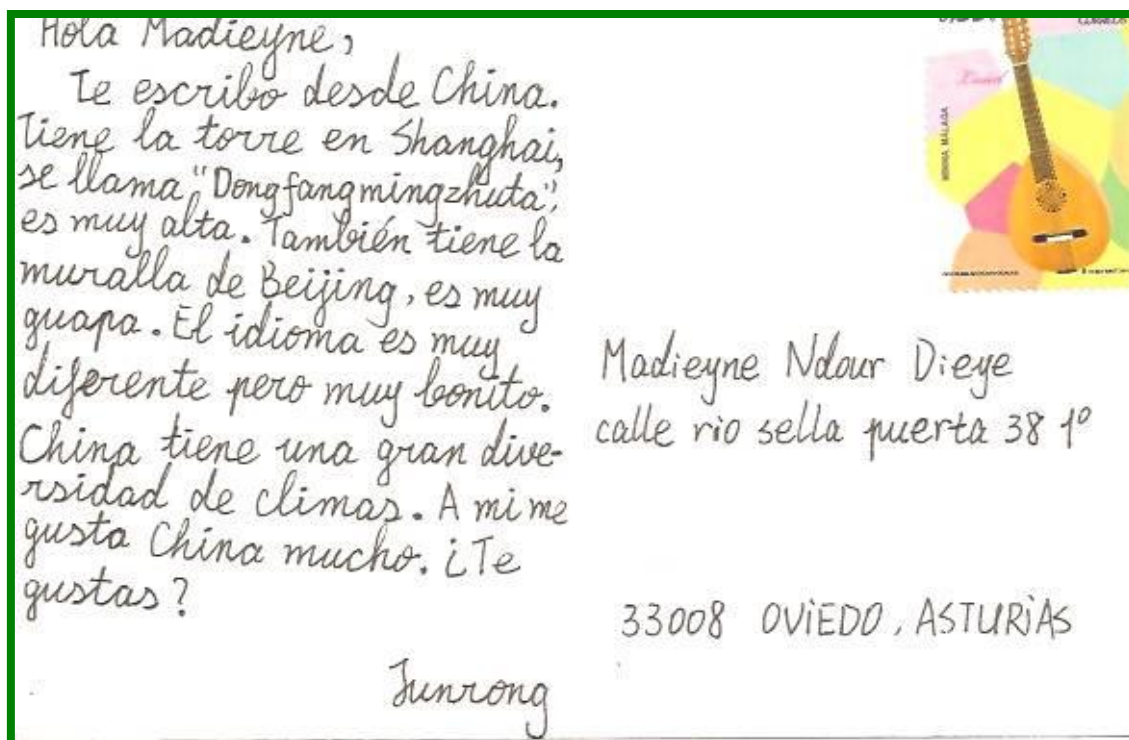 Hola Madieyne,
Te escribo desde China.
Tiene la torre en Shanghai,
se llama "Dongfangmingzhuta",
es muy alta. También tiene la
muralla de Beijing, es muy
guapa. El idioma es muy
diferente pero muy bonito.
China tiene una gran dive-
rsidad de climas. A mi me
gusta China mucho. ¿Te
gustas?
Junrong
CORREOS
BANDURRIA. MÁLAGA
Madieyne Ndour Dieye
calle rio sella puerta 38 1º
33008 OVIEDO, ASTURIAS